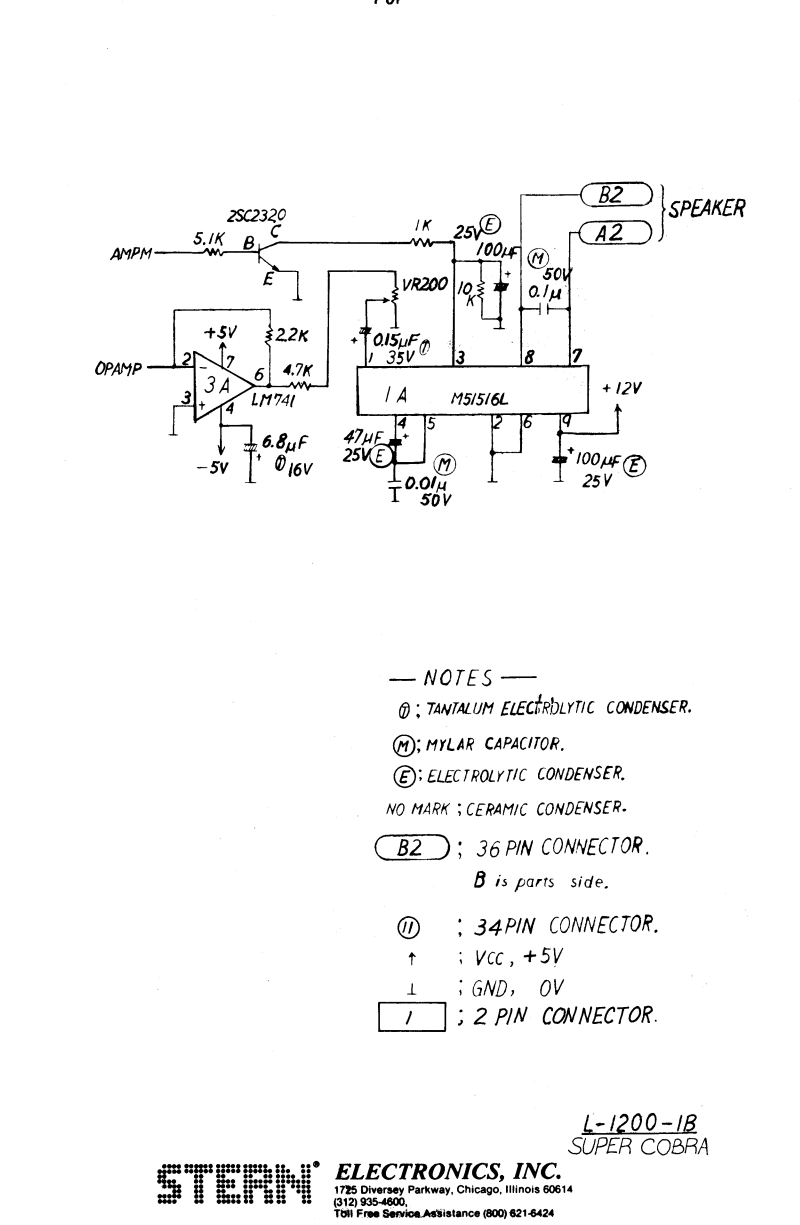 B2
SPEAKER
A2
2SC2320
C
1K
25V Ⓔ
100µF
5.1K
B
AMPM
E
10K
Ⓜ
50V
0.1µ
VR200
+5V
2.2K
0.15µF
35V Ⓣ
OPAMP
2
7
3A
6
4.7K
3
4
LM741
1
3
8
7
1A
M51516L
+12V
4
5
2
6
9
6.8µF
Ⓣ 16V
-5V
47µF
25V Ⓔ
Ⓜ
0.01µ
50V
100µF Ⓔ
25V
— NOTES —
Ⓣ ; TANTALUM ELECTROLYTIC CONDENSER.
Ⓜ ; MYLAR CAPACITOR.
Ⓔ ; ELECTROLYTIC CONDENSER.
NO MARK ; CERAMIC CONDENSER.
B2 ; 36 PIN CONNECTOR.
B is parts side.
⑪ ; 34PIN CONNECTOR.
↑ ; VCC, +5V
⊥ ; GND, 0V
1 ; 2 PIN CONNECTOR.
L-1200-1B
SUPER COBRA
STERN® ELECTRONICS, INC.
1725 Diversey Parkway, Chicago, Illinois 60614
(312) 935-4600,
Toll Free Service Assistance (800) 621-6424